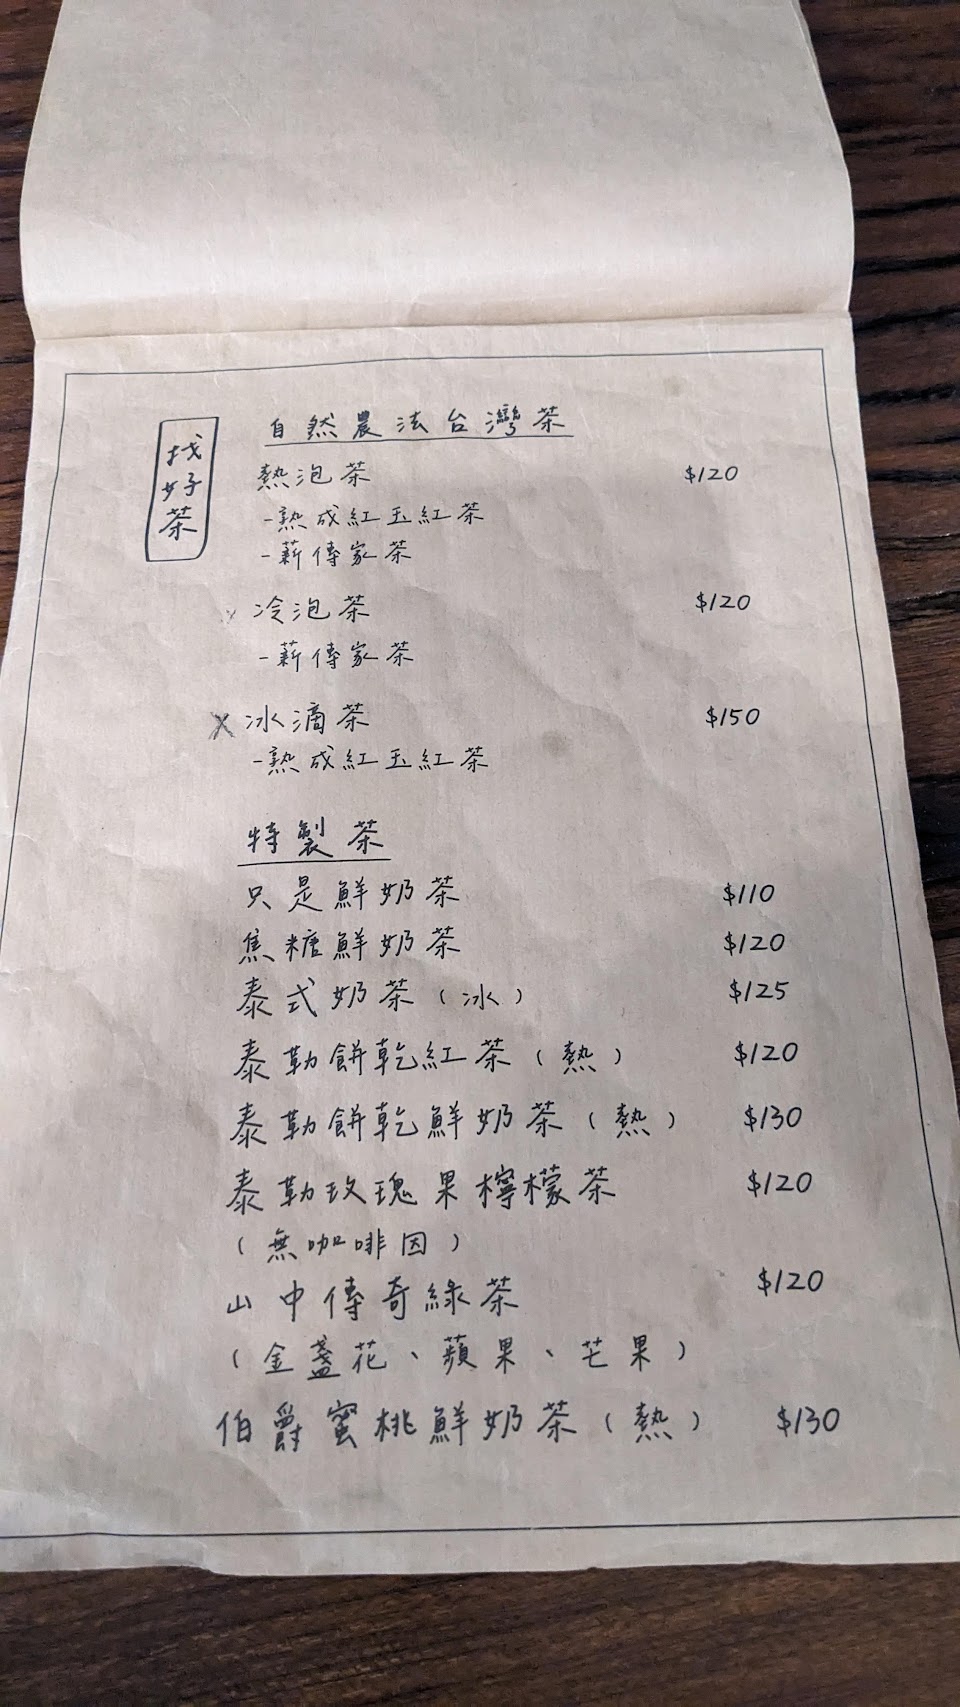 找好茶
自然農法台灣茶
熱泡茶 $120
-熟成紅玉紅茶
-薪傳家茶
冷泡茶 $120
-薪傳家茶
X 冰滴茶 $150
-熟成紅玉紅茶
特製茶
只是鮮奶茶 $110
焦糖鮮奶茶 $120
泰式奶茶(冰) $125
泰勒餅乾紅茶(熱) $120
泰勒餅乾鮮奶茶(熱) $130
泰勒玫瑰果檸檬茶 $120
(無咖啡因)
山中傳奇綠茶 $120
(金盞花、蘋果、芒果)
伯爵蜜桃鮮奶茶(熱) $130